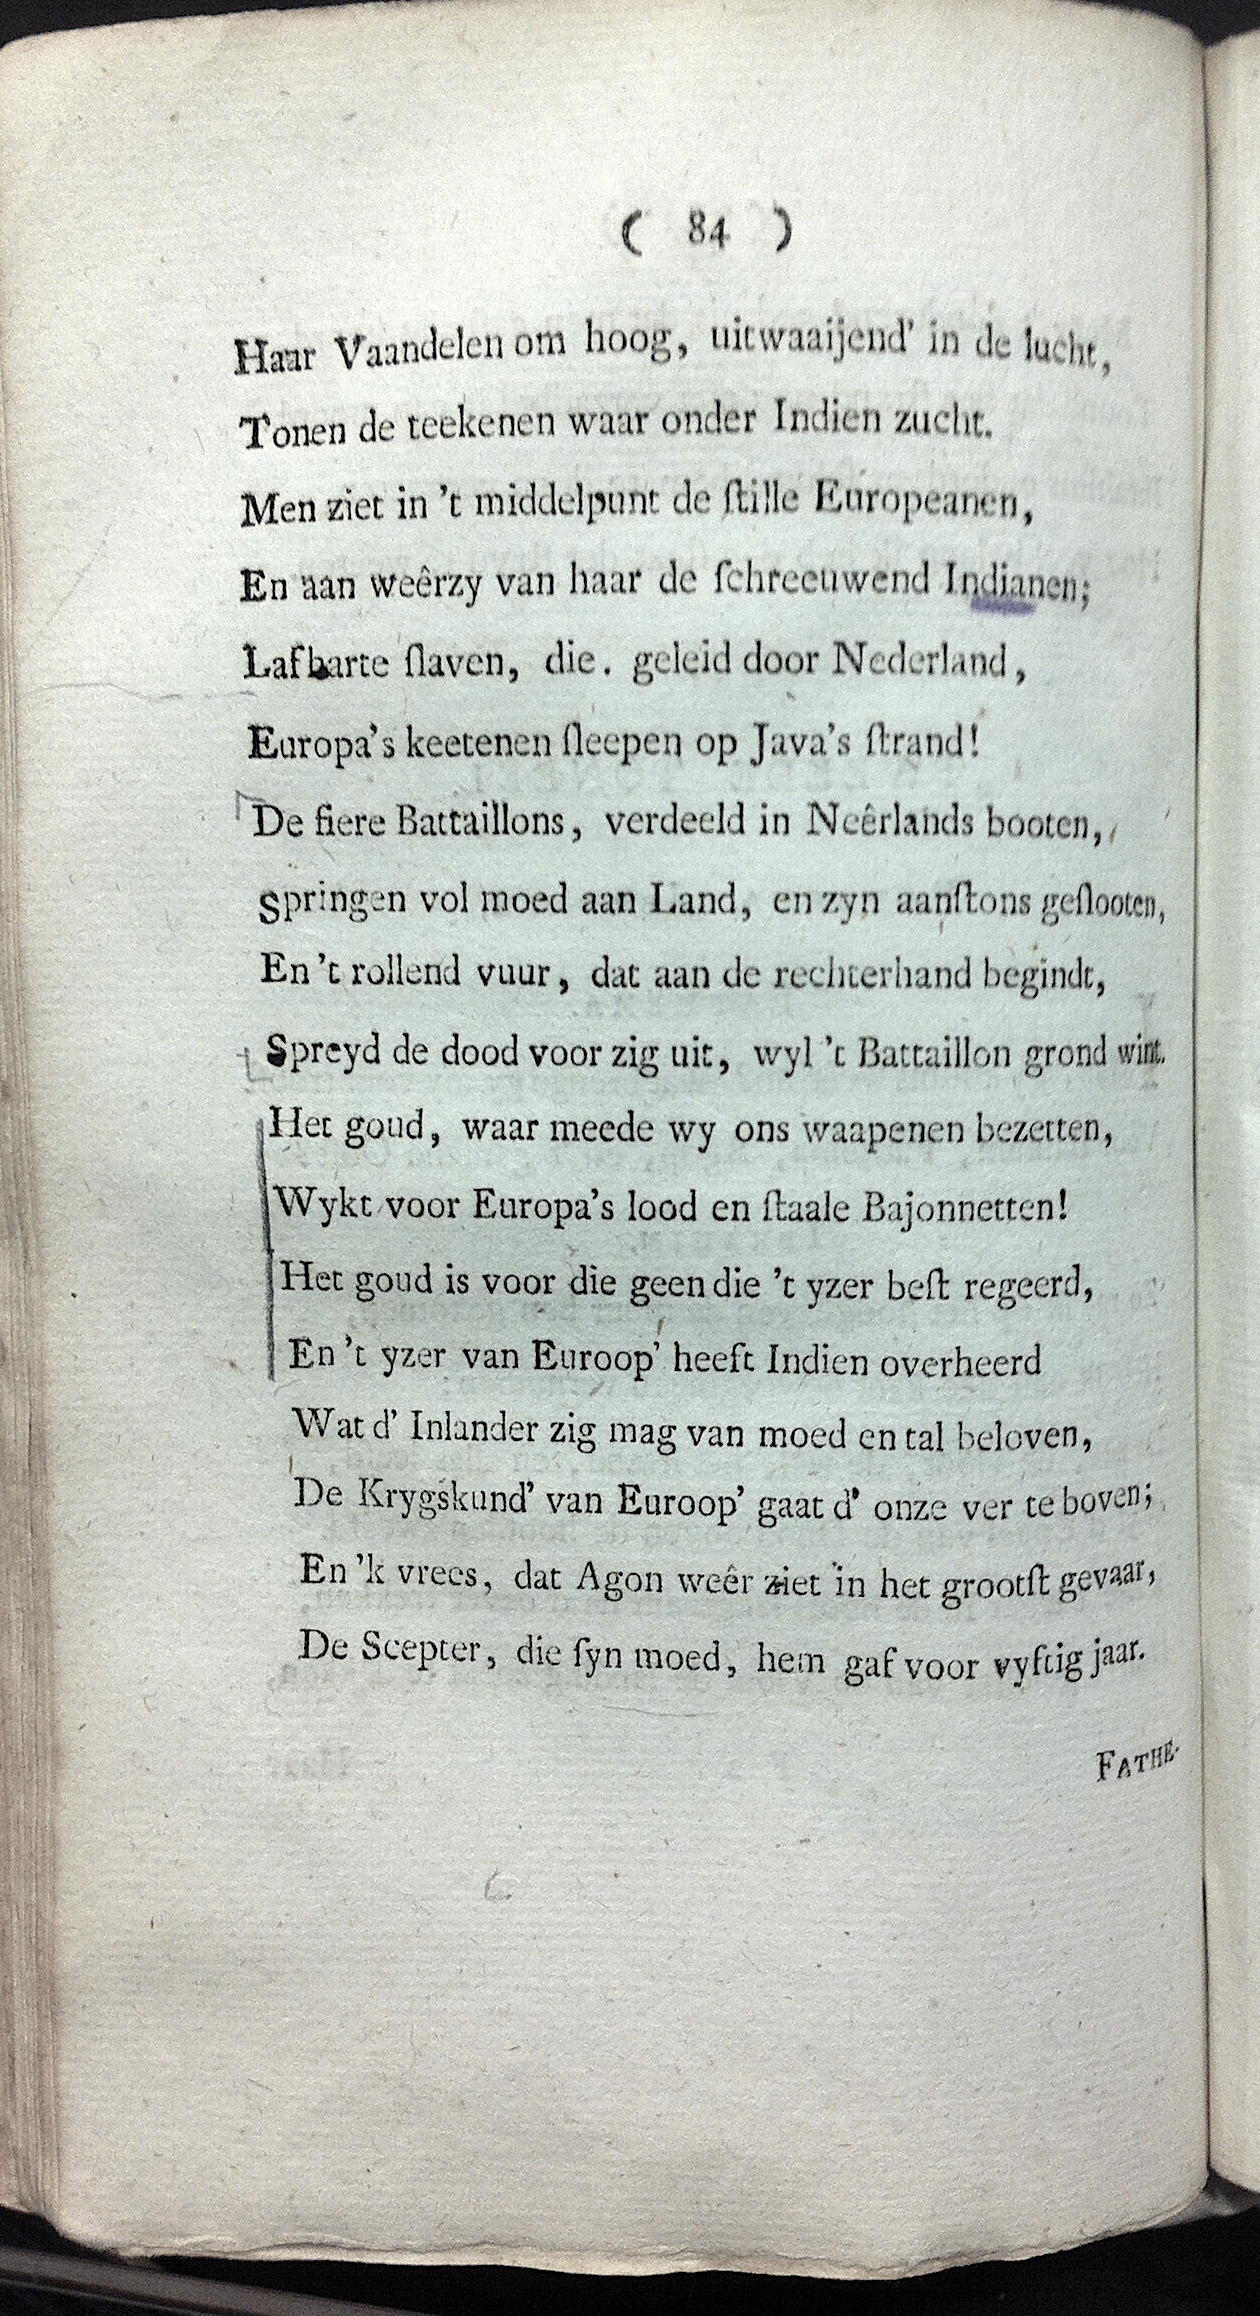 ( 84 )
Haar Vaandelen om hoog, uitwaaijend' in de lucht,
Tonen de teekenen waar onder Indien zucht.
Men ziet in 't middelpunt de ſtille Europeanen,
En aan weêrzy van haar de ſchreeuwend Indianen;
Lafharte ſlaven, die. geleid door Nederland,
Europa's keetenen ſleepen op Java's ſtrand!
De fiere Battaillons, verdeeld in Neêrlands booten,
Springen vol moed aan Land, en zyn aanſtons geſlooten,
En 't rollend vuur, dat aan de rechterhand begindt,
Spreyd de dood voor zig uit, wyl 't Battaillon grond wint.
Het goud, waar meede wy ons waapenen bezetten,
Wykt voor Europa's lood en ſtaale Bajonnetten!
Het goud is voor die geen die 't yzer beſt regeerd,
En 't yzer van Euroop' heeft Indien overheerd
Wat d' Inlander zig mag van moed en tal beloven,
De Krygskund' van Euroop' gaat d' onze ver te boven;
En 'k vrees, dat Agon weêr ziet in het grootſt gevaar,
De Scepter, die ſyn moed, hem gaf voor vyftig jaar.
FATHE-